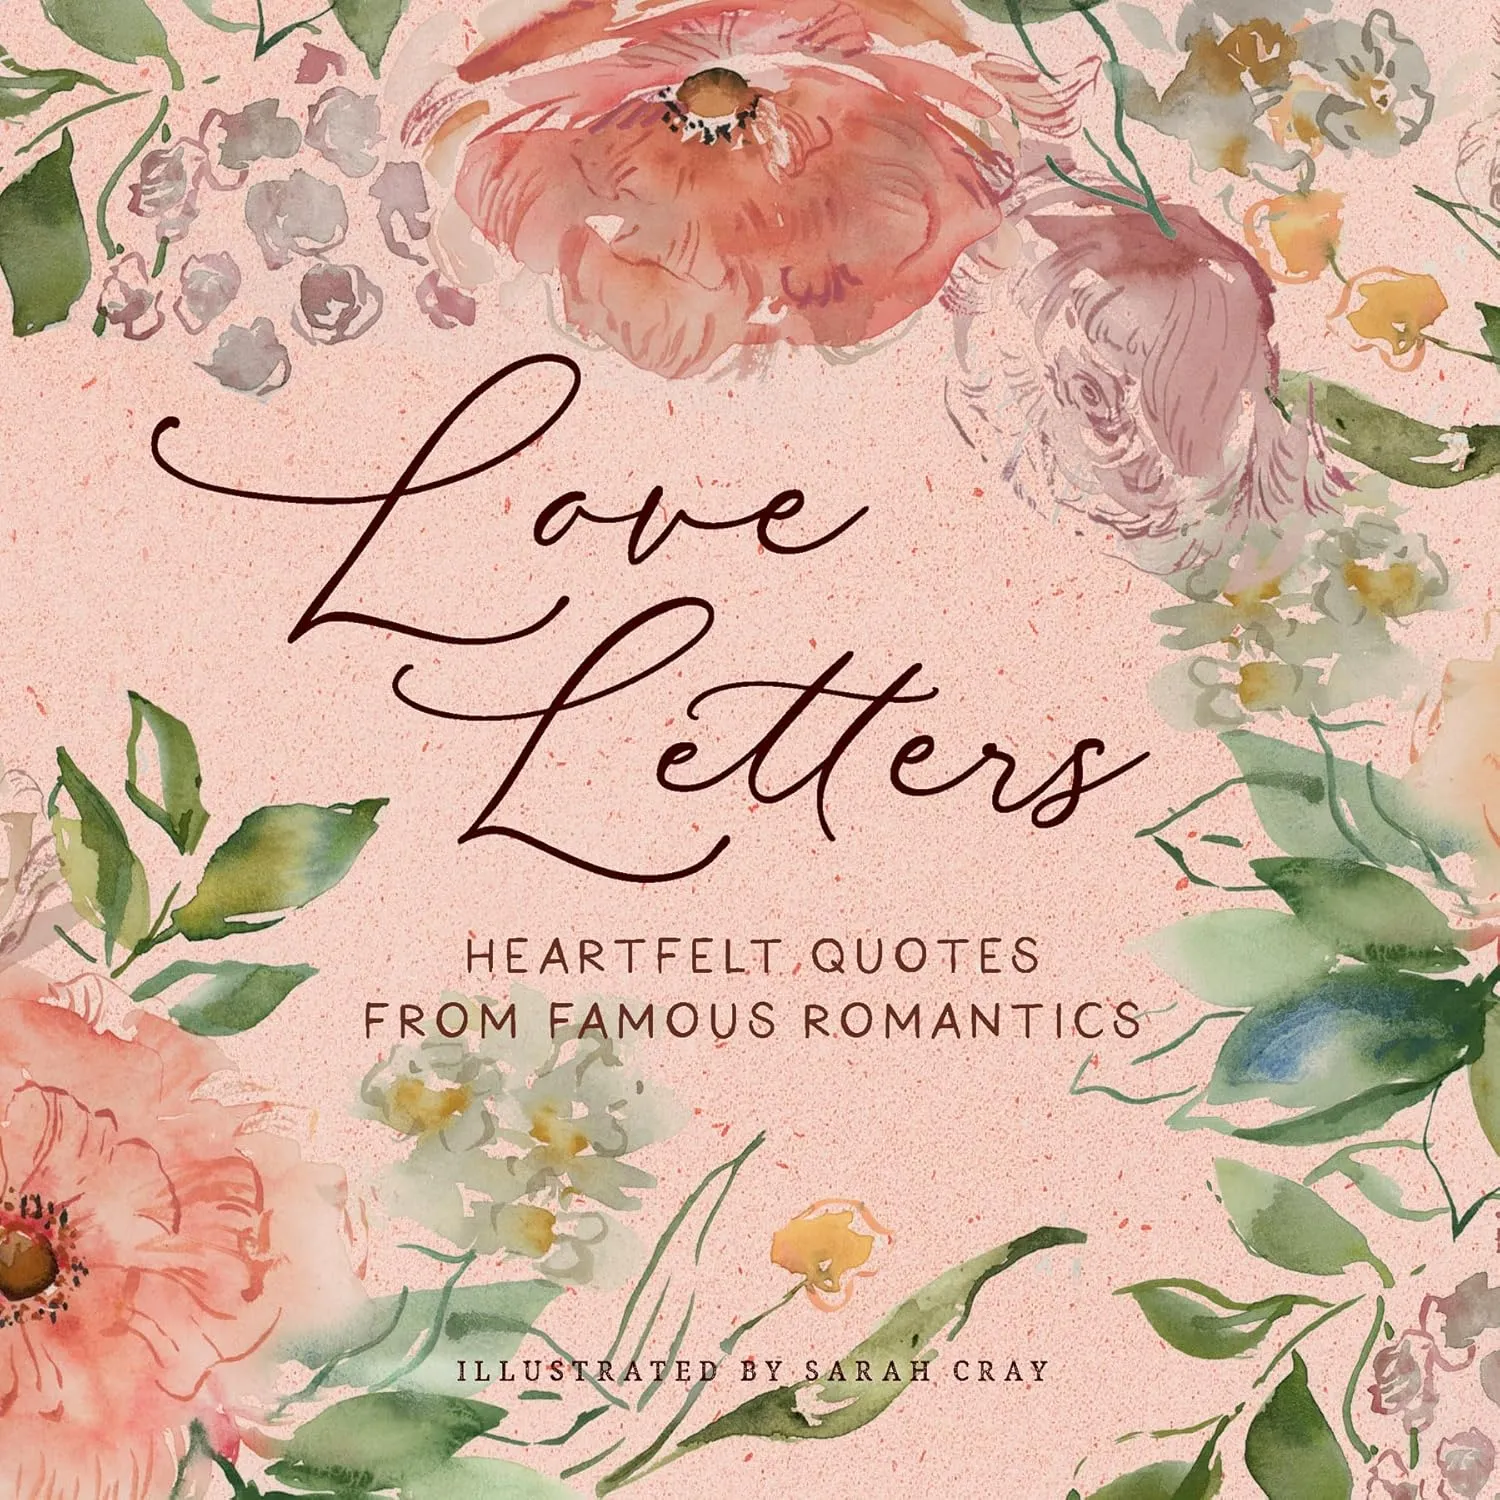 Love
Letters
HEARTFELT QUOTES
FROM FAMOUS ROMANTICS
ILLUSTRATED BY SARAH CRAY